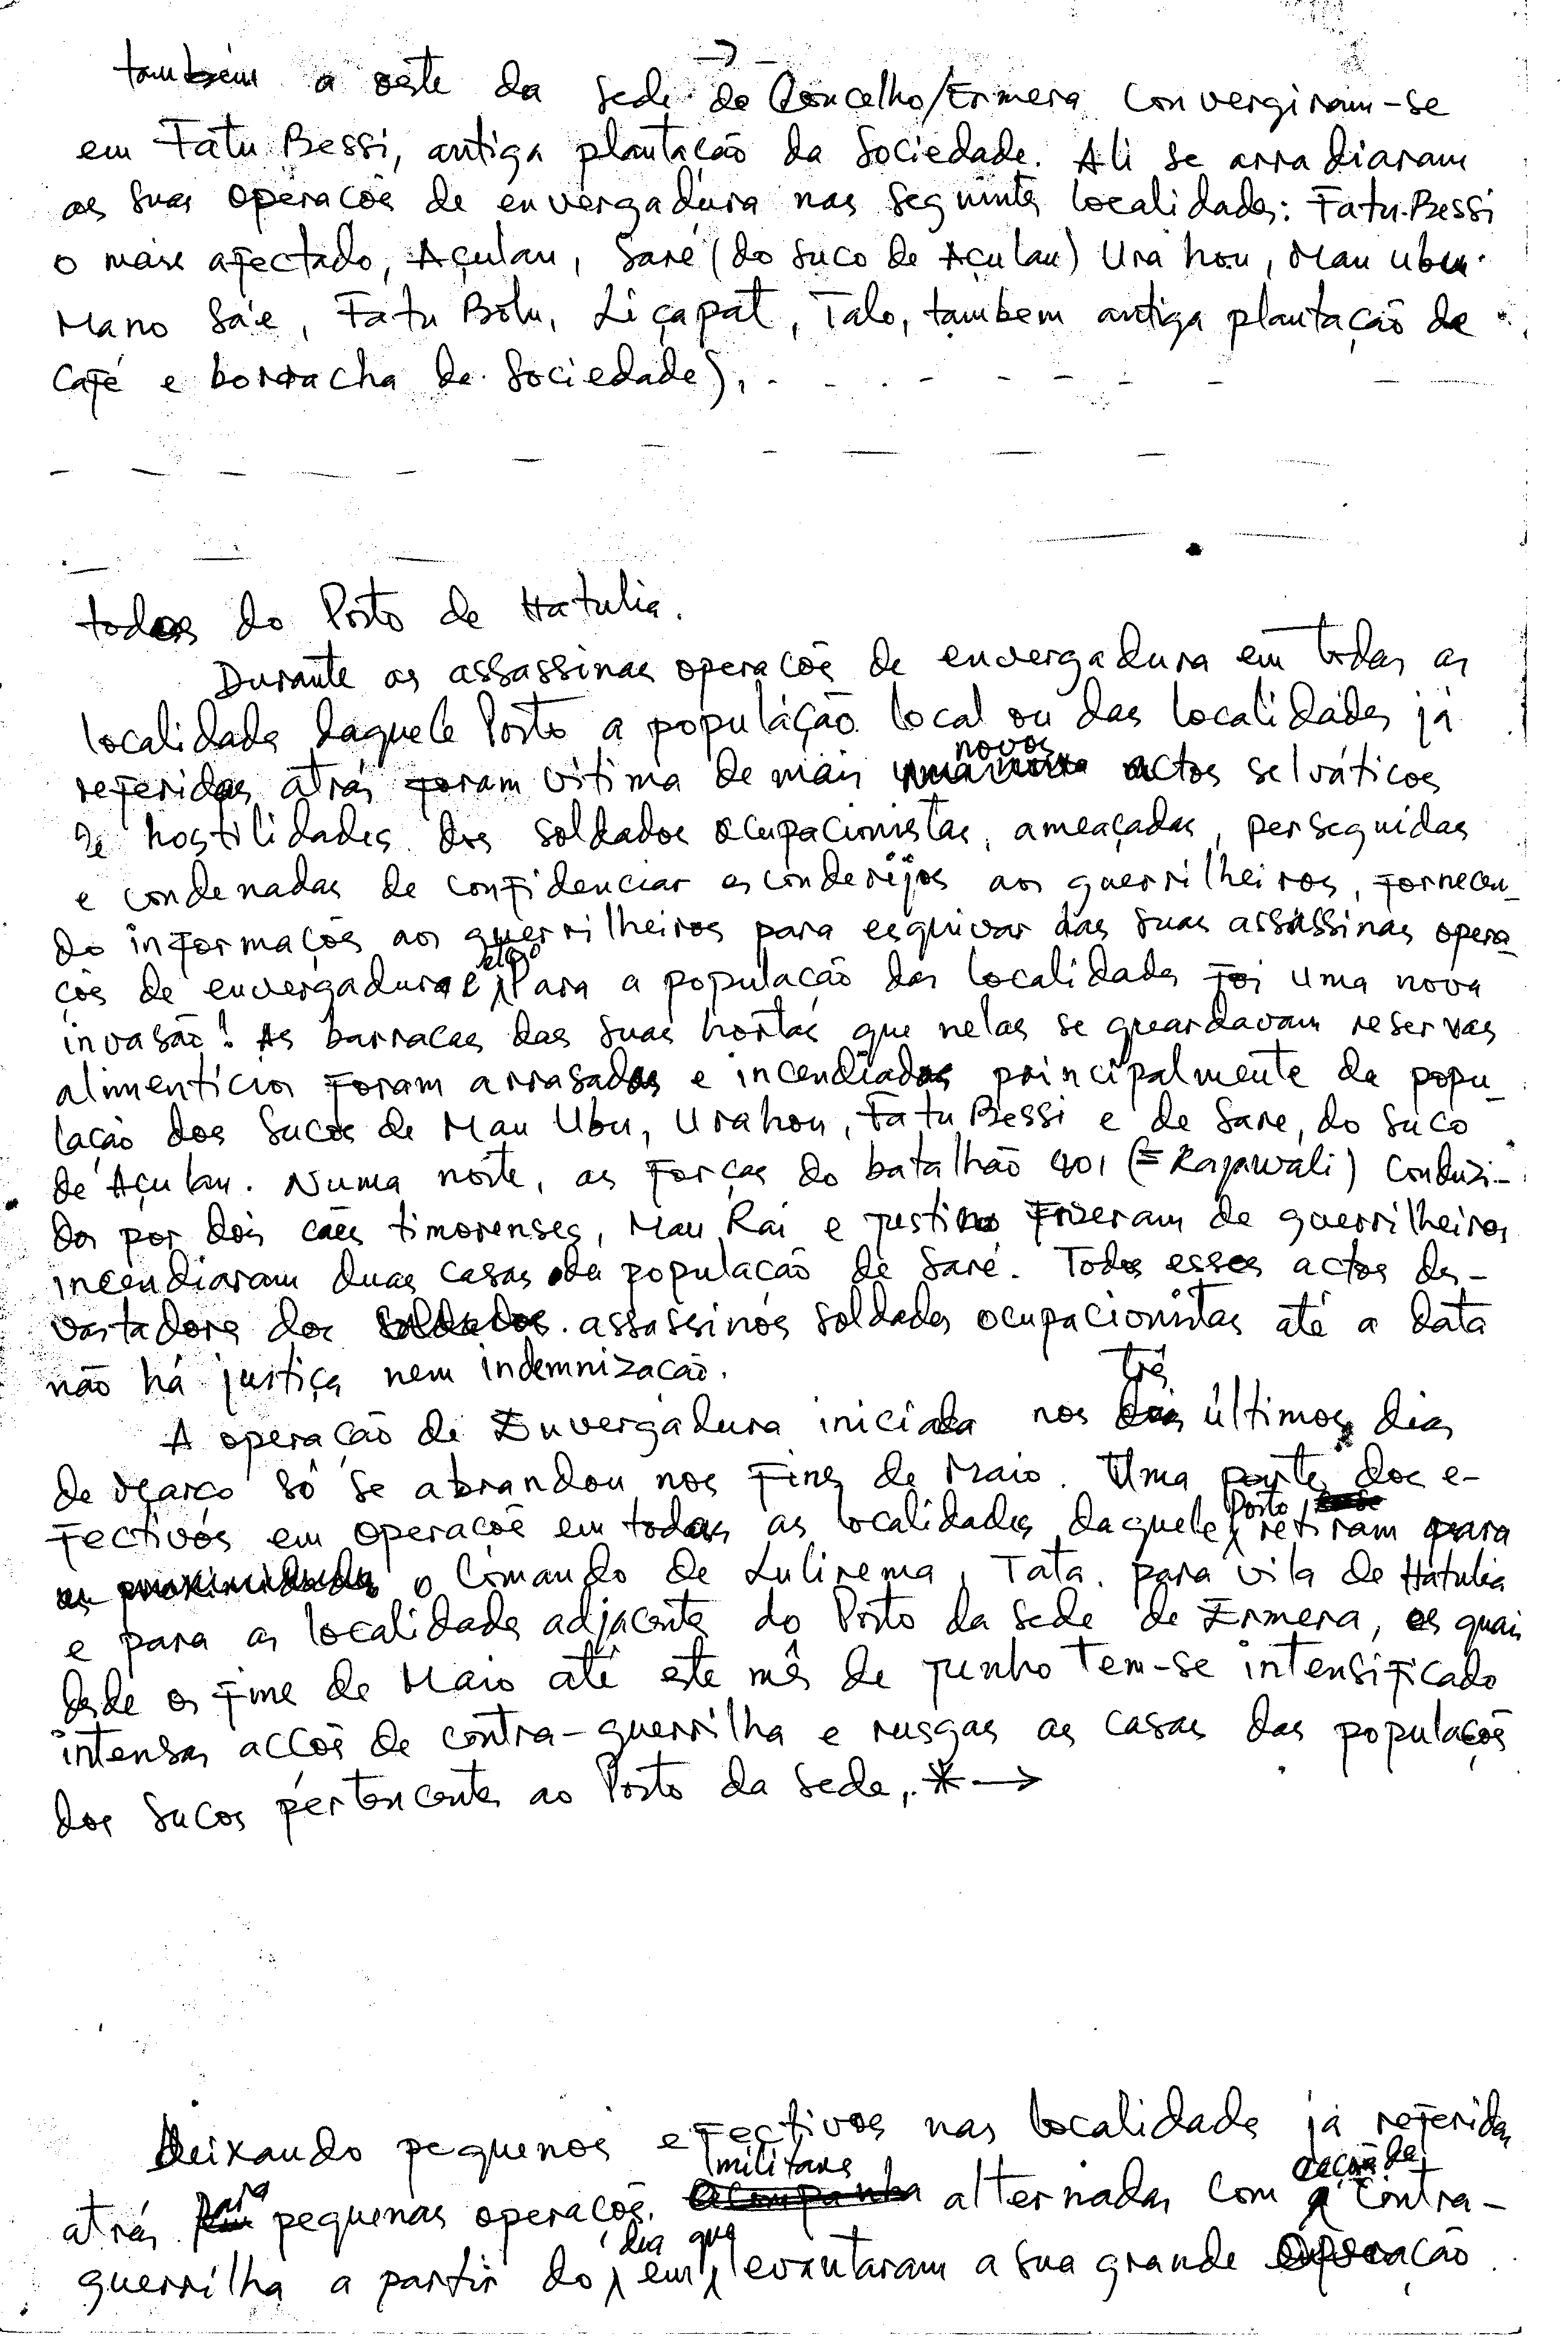 também a oeste da sede do Concelho/Ermera convergiram-se
em Fatu Bessi, antiga plantação da Sociedade. Ali se arradiaram
as suas operacões de envergadura nas seguintes localidades: Fatu-Bessi
o mais afectado, Açulau, Saré (do suco de Açulau) Urahou, Mau Ubu
Mano Sáe, Fatu Bolu, Liçapat, Talo, tambem antiga plantação de
Café e borracha da Sociedade),
todos do Posto de Hatulia.
Durante as assassinas operacões de envergadura em todas as
localidades daquele Posto a população local ou das localidades já
referidas atrás foram vítima de mais novos actos selváticos
de hostilidades dos soldados ocupacionistas, ameaçadas, perseguidas
e condenadas de confidenciar esconderijos aos guerrilheiros, fornecen-
do informações aos guerrilheiros para esquivar das suas assassinas opera-
ções de envergadura etc. Para a população das localidades foi uma nova
invasão! As barracas das suas hortas que nelas se guardavam reservas
alimentícias foram arrasadas e incendiadas principalmente da popu-
lação dos Sucos de Mau Ubu, Urahou, Fatu Bessi e de Sare, do suco
de Açulau. Numa noite, as forças do batalhão 401 (= Rajawali) conduzi-
dos por dois cães timorenses, Mau Rai e Justino fizeram de guerrilheiros
incendiaram duas casas da população de Saré. Todos esses actos de-
vastadores dos assassinos soldados ocupacionistas até a data
não há justiça nem indemnização.
A operação de Envergadura iniciada nos três últimos dias
de Março só se abrandou nos fins de Maio. Uma parte dos e-
fectivos em operacões em todas as localidades daquele Posto retiram para
o Comando de Lulirema, Tata, para vila de Hatulia
e para as localidades adjacentes do Posto da Sede de Ermera, os quais
desde os fins de Maio até este mês de Junho tem-se intensificado
intensas accões de contra-guerrilha e rusgas as casas das populações
dos Sucos pertencentes ao Posto da Sede, *→
Deixando pequenos efectivos nas localidades já referidas
atrás para pequenas operacões militares alternadas com acção de contra-
guerrilha a partir do dia em que levantaram a sua grande Operação.